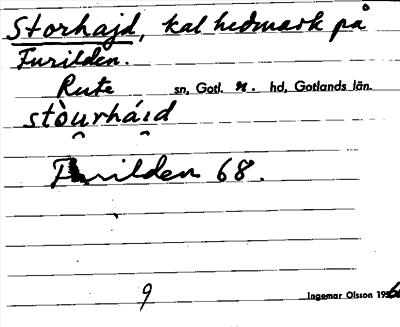 Storhajd, kal hedmark på
Furilden.
Rute sn, Gotl. n. hd, Gotlands län.
stòu̯rhái̯d
Furilden 68.
9
Ingemar Olsson 1956